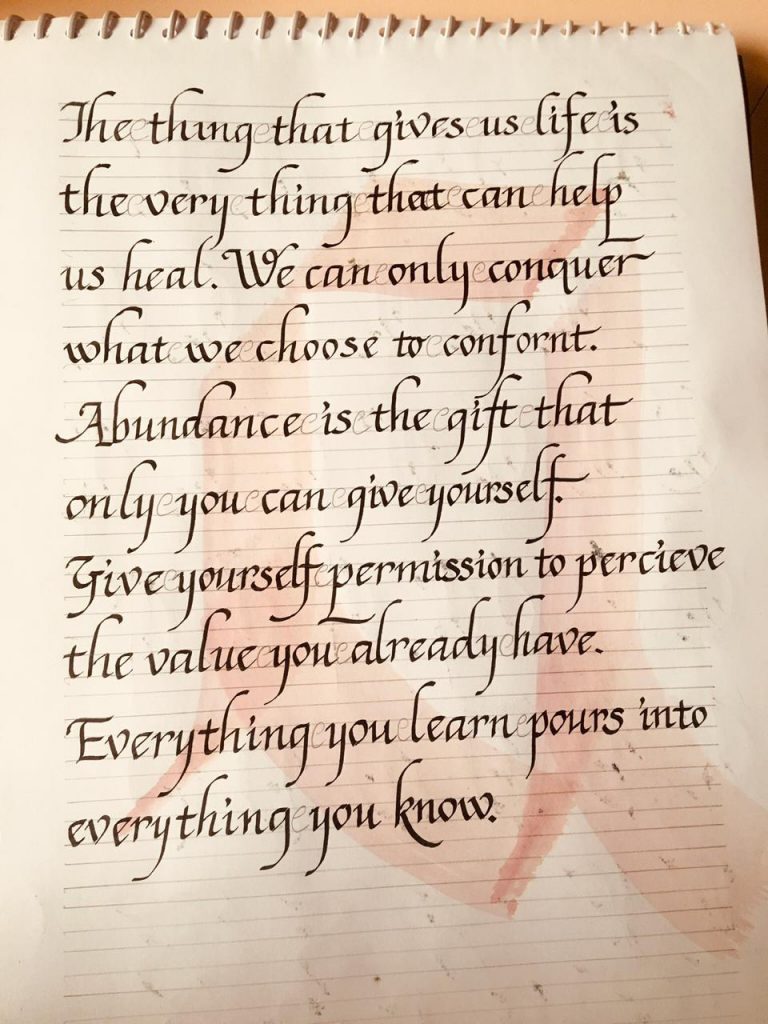 The thing that gives us life is
the very thing that can help
us heal. We can only conquer
what we choose to confornt.
Abundance is the gift that
only you can give yourself.
Give yourself permission to percieve
the value you already have.
Everything you learn pours into
everything you know.